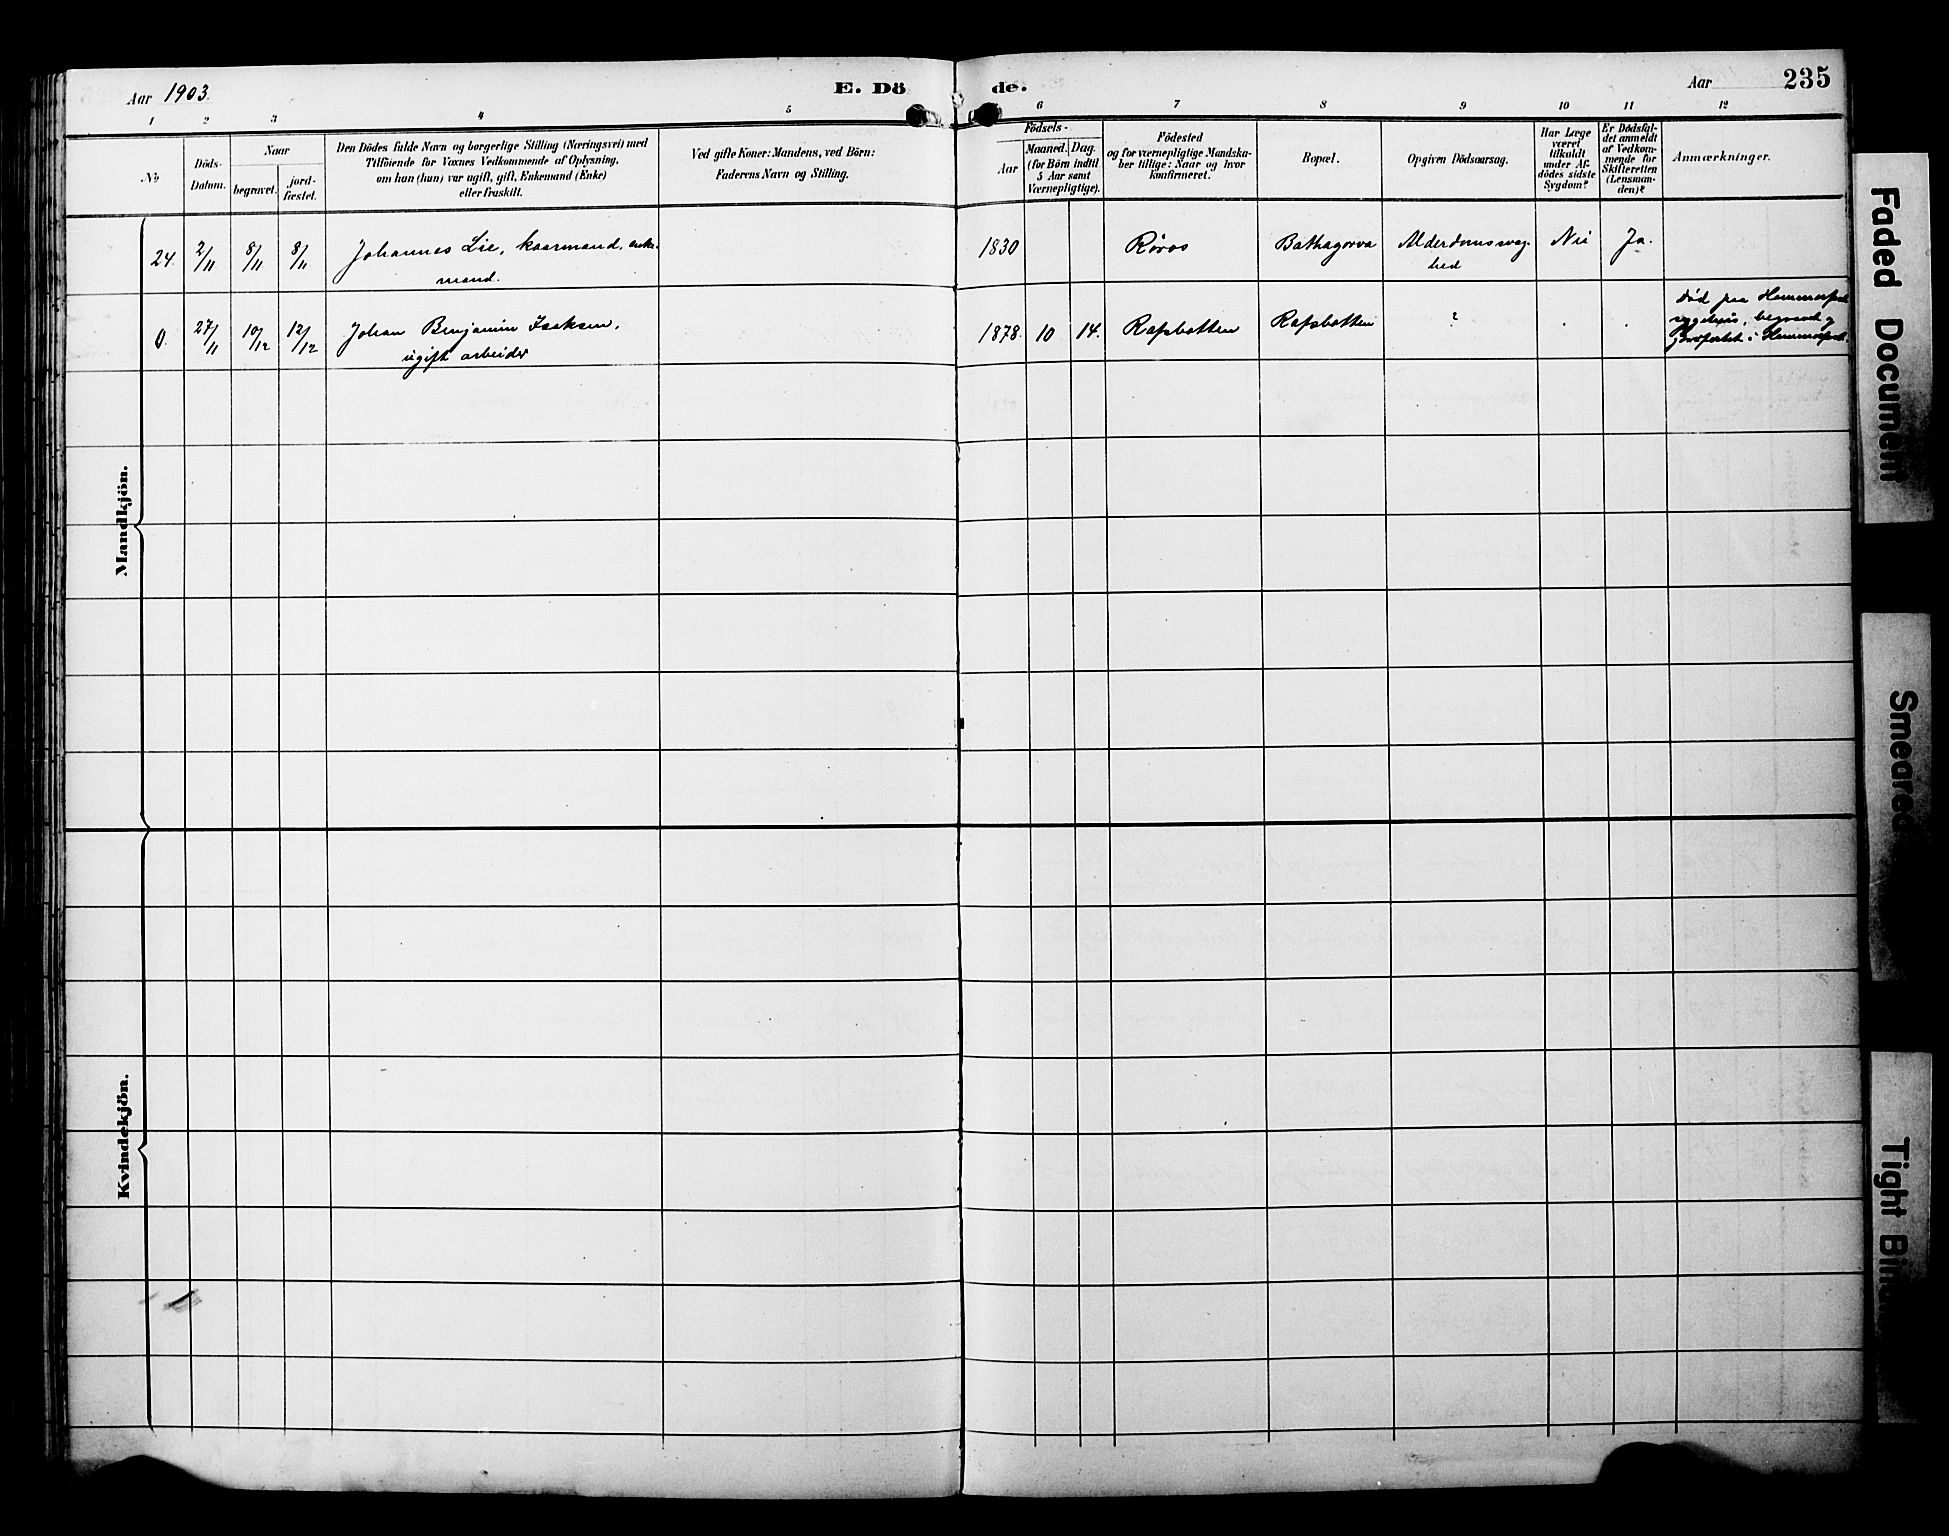 Aar 1903.
E. Dö de.
Aar
235
1 2 3 4 5 6 7 8 9 10 11 12
No
Döds-
Datum.
Naar
begravet.
jord-
fæstet.
Den Dödes fulde Navn og borgerlige Stilling (Næringsvei) med
Tilföiende for Voxnes Vedkommende af Oplysning,
om han (hun) var ugift, gift, Enkemand (Enke)
eller fraskilt.
Ved gifte Koner: Mandens, ved Börn:
Faderens Navn og Stilling.
Födsels-
Aar
Maaned. Dag.
(for Börn indtil
5 Aar samt
Værnepligtige).
Födested
og for værnepligtige Mandska-
ber tillige: Naar og hvor
konfirmeret.
Bopæl.
Opgiven Dödsaarsag.
Har Læge
været
tilkaldt
under Af-
dödes sidste
Sygdom?
Er Dödsfal-
det anmeldt
af Vedkom-
mende for
Skifteretten
(Lensman-
den)?
Anmærkninger.
24. 2/11 8/11 8/11 Johannes Lie, kaarmand, enke-
mand.
1830 Røros Alderdomssvag-
hed
Nei Ja.
0. 27/11 10/12 12/12 Johan Benjamin Isaksen,
ugift arbeider
1878. 10 14. Rafsbotten Rafsbotten ? . .
Død paa Hammerfest
sygehus, begravet og
jordfæstet i Hammerfest.
Mandkjön.
Kvindekjön.
Faded Document
Smeared
Tight